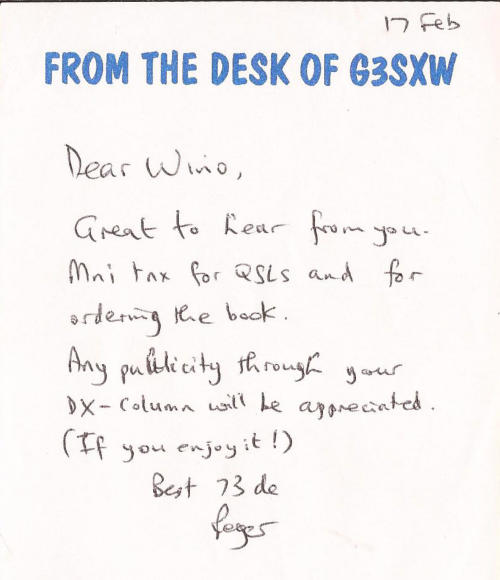 17 Feb
FROM THE DESK OF G3SXW
Dear Wino,
Great to hear from you.
Mni tnx for QSLs and for
ordering the book.
Any publicity through your
DX-Column will be appreciated.
(If you enjoy it!)
Best 73 de
Roger